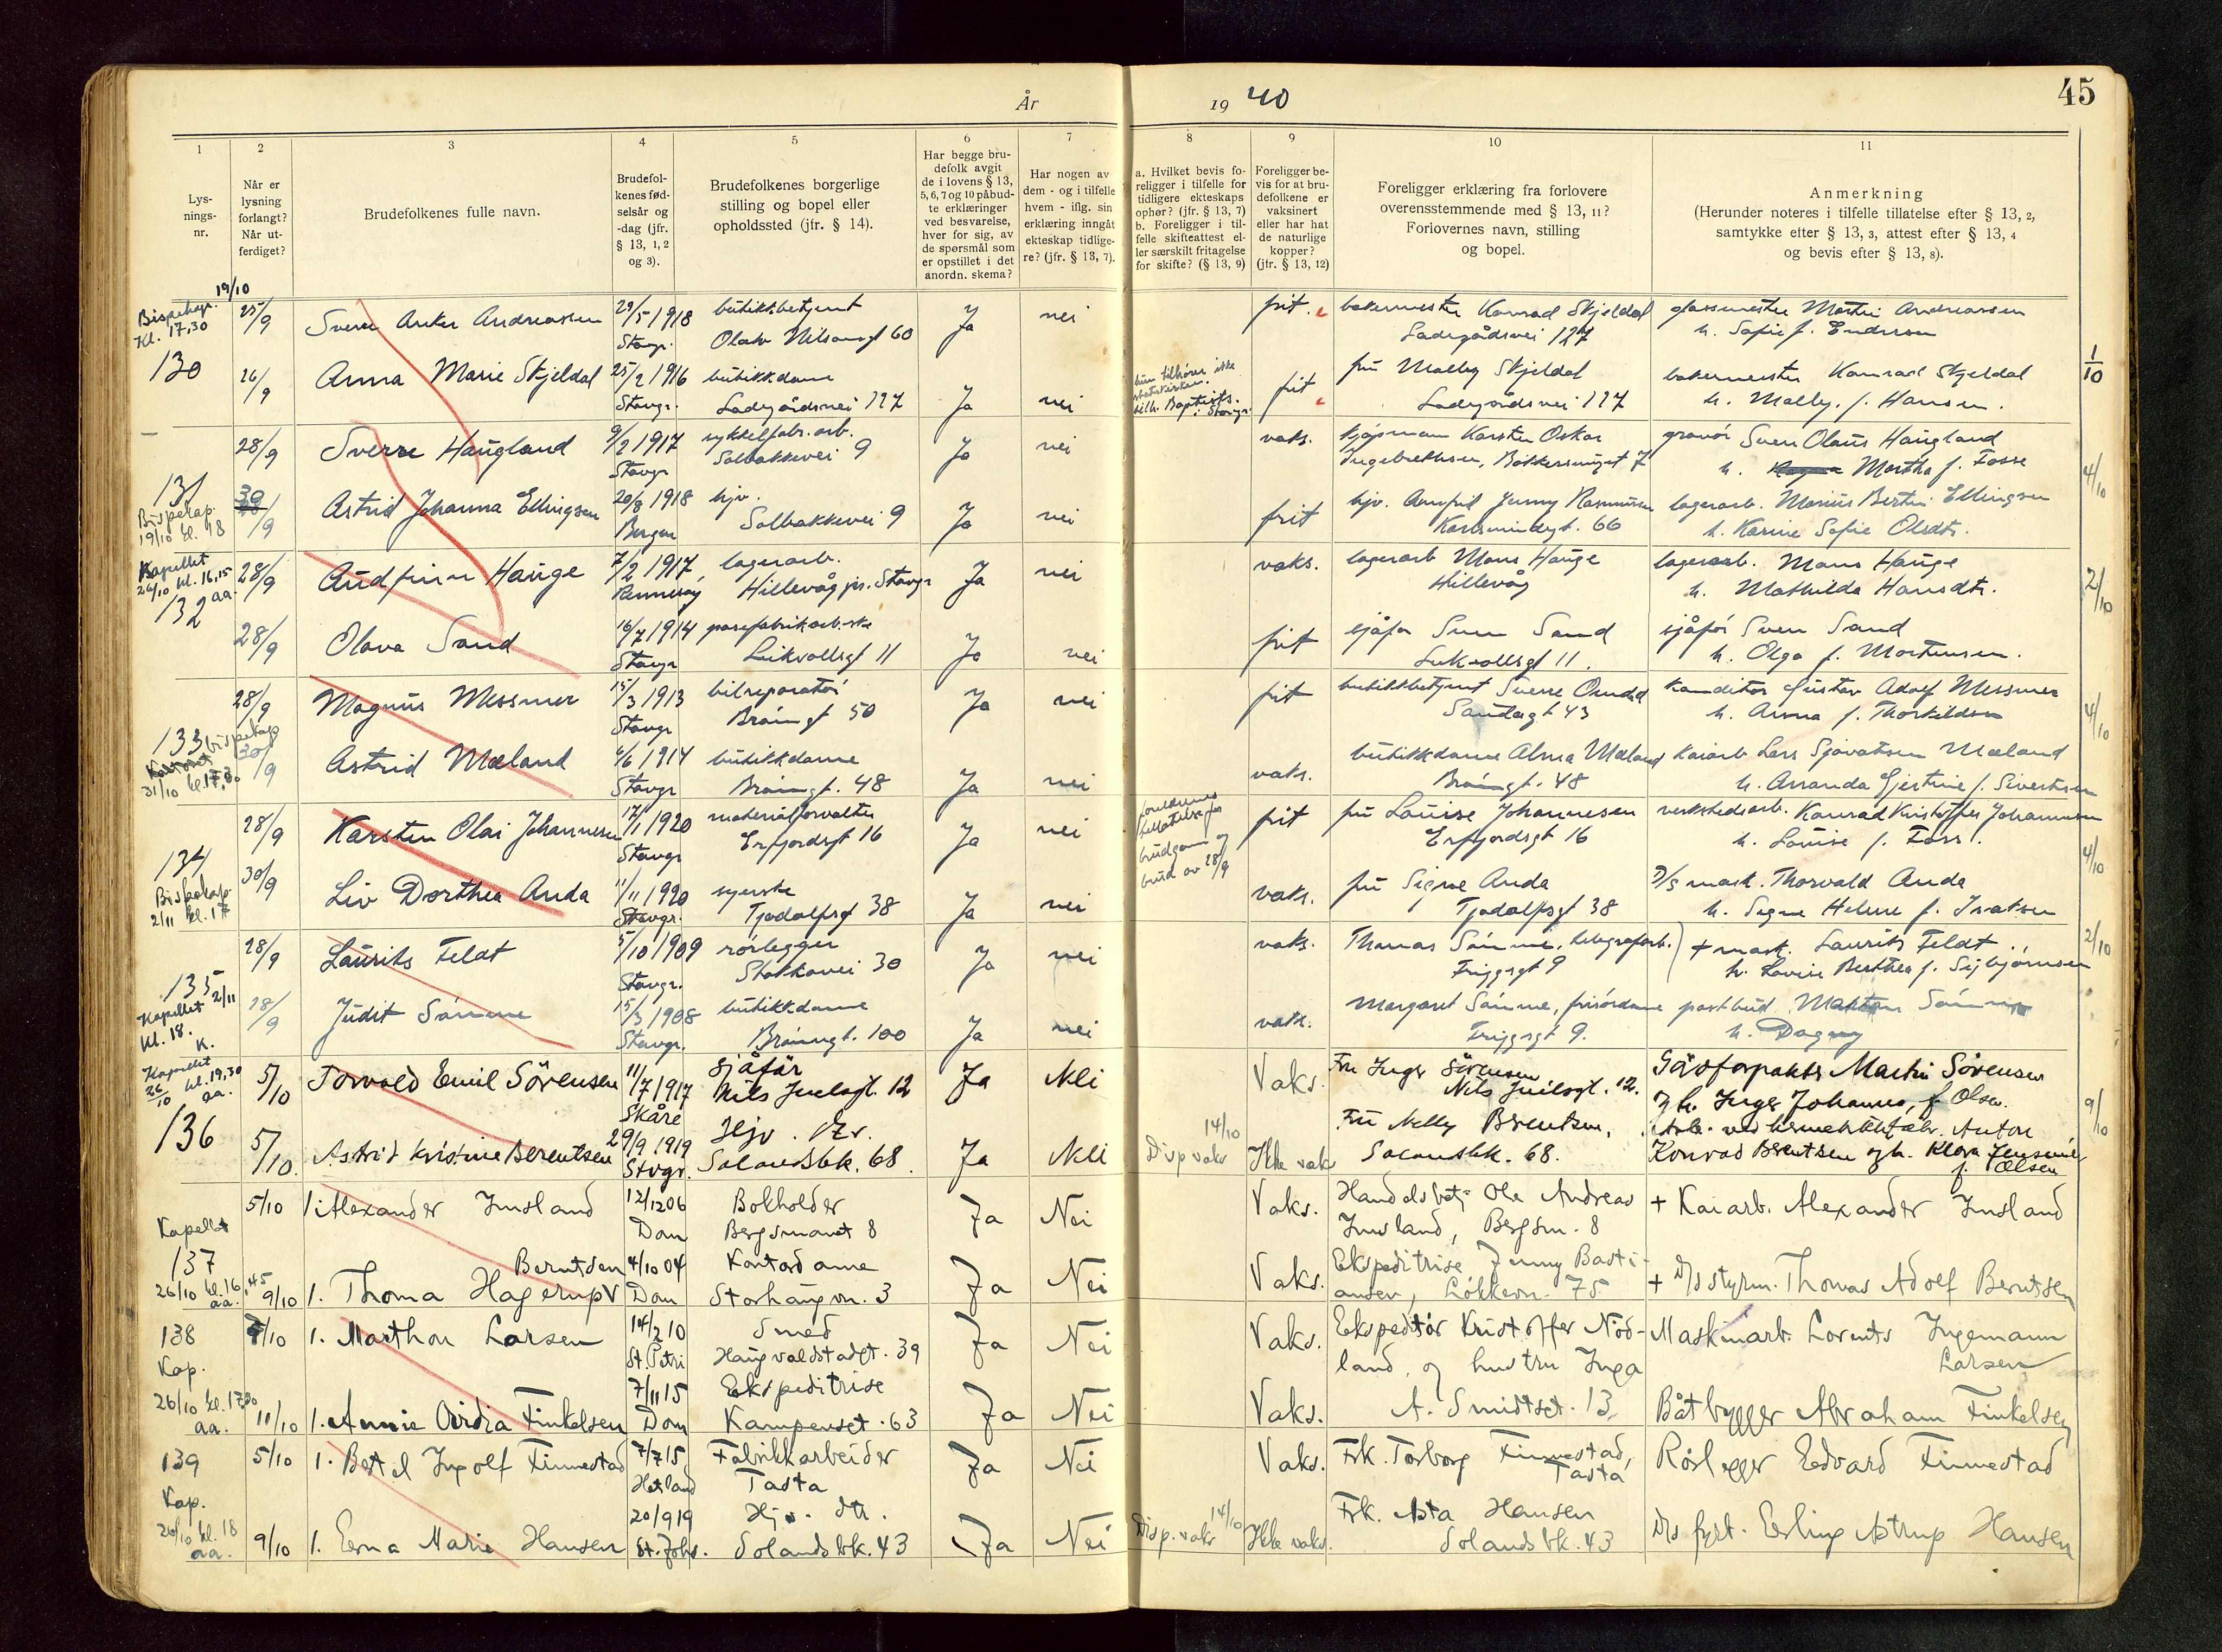 År
19 40
45
1
Lys-
nings-
nr.
2
Når er
lysning
forlangt?
Når ut-
ferdiget?
3
Brudefolkenes fulle navn.
4
Brudefol-
kenes fød-
selsår og
-dag (jfr.
§ 13, 1, 2
og 3).
5
Brudefolkenes borgerlige
stilling og bopel eller
opholdssted (jfr. § 14).
6
Har begge bru-
defolk avgit
de i lovens § 13,
5, 6, 7 og 10 påbud-
te erklæringer
ved besvarelse,
hver for sig, av
de spørsmål som
er opstillet i det
anordn. skema?
7
Har nogen av
dem - og i tilfelle
hvem - iflg. sin
erklæring inngåt
ekteskap tidlige-
re? (jfr. § 13, 7).
8
a. Hvilket bevis fo-
religger i tilfelle for
tidligere ekteskaps
ophør? (jfr. § 13, 7)
b. Foreligger i til-
felle skifteattest el-
ler særskilt fritagelse
for skifte? (§ 13, 9)
9
Foreligger be-
vis for at bru-
defolkene er
vaksinert
eller har hat
de naturlige
kopper?
(jfr. § 13, 12)
10
Foreligger erklæring fra forlovere
overensstemmende med § 13, 11?
Forlovernes navn, stilling
og bopel.
11
Anmerkning
(Herunder noteres i tilfelle tillatelse efter § 13, 2,
samtykke efter § 13, 3, attest efter § 13, 4
og bevis efter § 13, 8).
19/10
Bispekap.
Kl. 17,30
25/9 Sverre Anker Andreassen 29/5 1918 butikkbetjent Ja nei frit. bakermester Konrad Skjeldal glassmester Martin Andreassen
Stavgr. Olav Nilsensgt 60 Ladegårdsvei 127 h. Sofie f. Endresen
130 26/9 Anna Marie Skjeldal 25/2 1916 butikkdame hun tilhører ikke statskirken. frit fru Malby Skjeldal bakermester Konrad Skjeldal 1/10
Stavgr. Ladegårdsvei 127 Ja nei tilh. Baptists. i Stavgr. Ladegårdsvei 127 h. Malby. f. Hansen.
28/9 Sverre Haugland 9/2 1917 sykkelfabr. arb. Ja nei vaks. kjøpmann Karsten Oskar gravør Sven Olaus Haugland
Stavgr Solbakkevei 9 Ingebrethsen, Bøkkersmuget 7 h. Martha f. Fosse 4/10
131 30/9 Astrid Johanna Ellingsen 20/8 1918 hjv. frit hjv. Arnfrid Jenny Rasmussen lagerarb. Marius Bertin Ellingsen
Bispekap. 19/10 kl. 18 Bergen Solbakkevei 9 Ja nei Karlsmindegt. 66 h. Karine Sofie Olsdtr.
Kapellet 26/10 kl. 16.15 aa. 28/9 Audfinn Hauge 7/2 1917 lagerarb. Ja nei vaks. lagerarb Mons Hauge lagerarb. Mons Hauge
132 Rennesøy Hillevåg pr. Stavgr Hillevåg h. Mathilda Hansdtr. 2/10
28/9 Olava Sand 16/7 1914 posefabrikarb.ske frit sjåfør Sven Sand sjåfør Sven Sand
Stavgr Leikvollsgt 11 Ja nei Leikvollsgt 11. h. Olga f. Mortensen.
28/9 Magnus Messmer 15/3 1913 bilreparatør Ja nei frit butikkbetjent Sverre Omdal konditor Gustav Adolf Messmer
Stavgr Bråingt 50 Sandsgt 43 h. Anna f. Thorkildsen 4/10
133 30/9 Astrid Mæland 4/6 1914 butikkdame vaks. butikkdame Alma Mæland kaiarb Lars Sjovatsen Mæland
31/10 kl. 17.30 Stavgr Bråingt. 48 Ja nei Bråingt. 48 h. Amanda Gjertine f. Sivertsen
28/9 Karsten Olai Johannesen 17/1 1920 materialforvalter Ja nei foreldrenes tillatelse for brudgom og brud av 28/9 frit fru Louise Johannesen verkstedsarb. Konrad Kristoffer Johannesen
Stavgr Erfjordsgt 16 Erfjordsgt 16 h. Louise f. Foss. 4/10
134 30/9 Liv Dorthea Anda 11/11 1920 syerske vaks. fru Signe Anda D/S mask. Thorvald Anda
Bispekap. 2/11 kl. 17 Stavgr. Tjodolfsgt 38 Ja nei Tjodolfsgt 38 h. Signe Helene f. Ivatsen
28/9 Laurits Feldt 5/10 1909 rørlegger Ja nei vaks. Thomas Sømme, telegrafarb. + mask. Laurits Feldt 2/10
135 Stavgr. Stokkavei 30 Friggsgt 9 h. Lovise Berthea f. Sigbjørnsen
Kapellet 2/11 kl. 18. K. 28/9 Judit Sømme 15/3 1908 butikkdame vaks. Margaret Sømme, frisørdame postbud Sømme
Stavgr. Bråingt. 100 Ja nei Friggsgt 9. h. Dagny
Kapellet 26/10 kl. 19,30 aa. 5/10 Torvald Emil Sørensen 11/7 1917 Sjåfør Ja Nei Vaks. Fru Inger Sørensen Gårdforpakter Martin Sørensen
Skåre Nils Juelsgt. 12 Nils Juelsgt. 12. og h. Inger Johanne, f. Olsen. 9/10
136 5/10. Astrid Kristine Berentsen 29/9 1919 Hjv. Ja Nei 14/10 Disp vaks Ikke vaks Fru Nelly Berentsen, Arb. ved hermetikkfabr. Anton
Stvgr. Solandsbk. 68. Solandsbk. 68. Konrad Berentsen og h. Klara Jensine f. Olsen
Kapellet 5/10 1. Alexander Imsland 12/12 06 Bokholder Ja Nei Vaks. Handelsbetj. Ole Andreas + Kaiarb. Alexander Imsland
Dom Bergsmauet 8 Imsland, Bergsm. 8
137 Berntsen 4/10 04 Kontordame Ekspeditrise Jenny Basti-
26/10 kl. 16.45 aa. 9/10 1. Thoma Hagerup V Dom Storhaugvn. 3 Ja Nei Vaks. ansen, Løkkevn. 75 + D/S styrm. Thomas Adolf Berntsen
138 7/10 1. Marthon Larsen 14/2 10 Smed Ja Nei Vaks. Ekspeditør Kristoffer Nød- Maskinarb. Lorents Ingemann
Kap. St. Petri Haugvaldstadgt. 39 land og hustru Inga Larsen
7/11 15 Ekspeditrise
26/10 kl. 17.30 aa. 11/10 1. Annie Ovidia Finkelsen Dom Kampenset. 63 Ja Nei Vaks. A. Smidtsgt. 13. Båtbygger Abraham Finkelsen
139 5/10 1. Bertel Ingolf Finnestad 7/7 15 Fabrikkarbeider Ja Nei Vaks. Frk. Torborg Finnestad, Rørlegger Edvard Finnestad
Kap. Hetland Tasta Tasta
20/9 19 Hjv. dtr. Frk. Asta Hansen
26/10 kl. 18 aa. 9/10 1. Erna Marie Hansen St. Johs. Solandsbk. 43 Ja Nei 14/10 Disp. vaks Ikke vaks. Solandsbk. 43 D/S fyrb. Erling Astrup Hansen